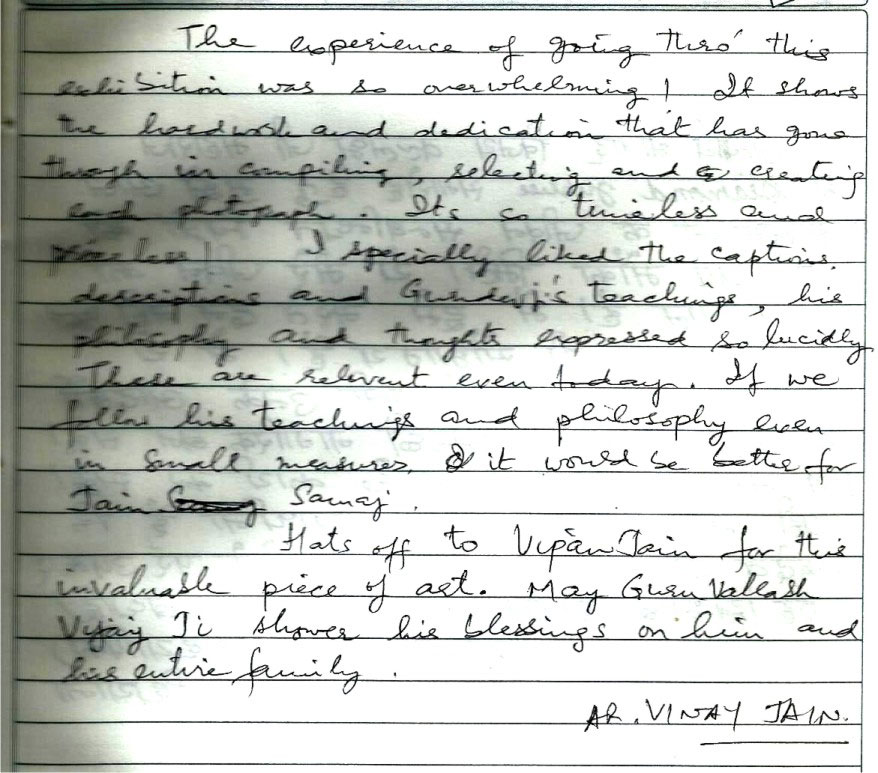 The experience of going thro' this
exhibition was so overwhelming! It shows
the hardwork and dedication that has gone
through in compiling, selecting and creating
each photograph. Its so timeless and
priceless! I specially liked the captions,
descriptions and Gurudevji's teachings, his
philosophy and thoughts expressed so lucidly
These are relevant even today. If we
follow his teachings and philosophy even
in small measures, it would be better for
Jain Samaj.
Hats off to Vipan Jain for this
invaluable piece of art. May Guru Vallabh
Vijay Ji shower his blessings on him and
his entire family.
AR. VINAY JAIN.